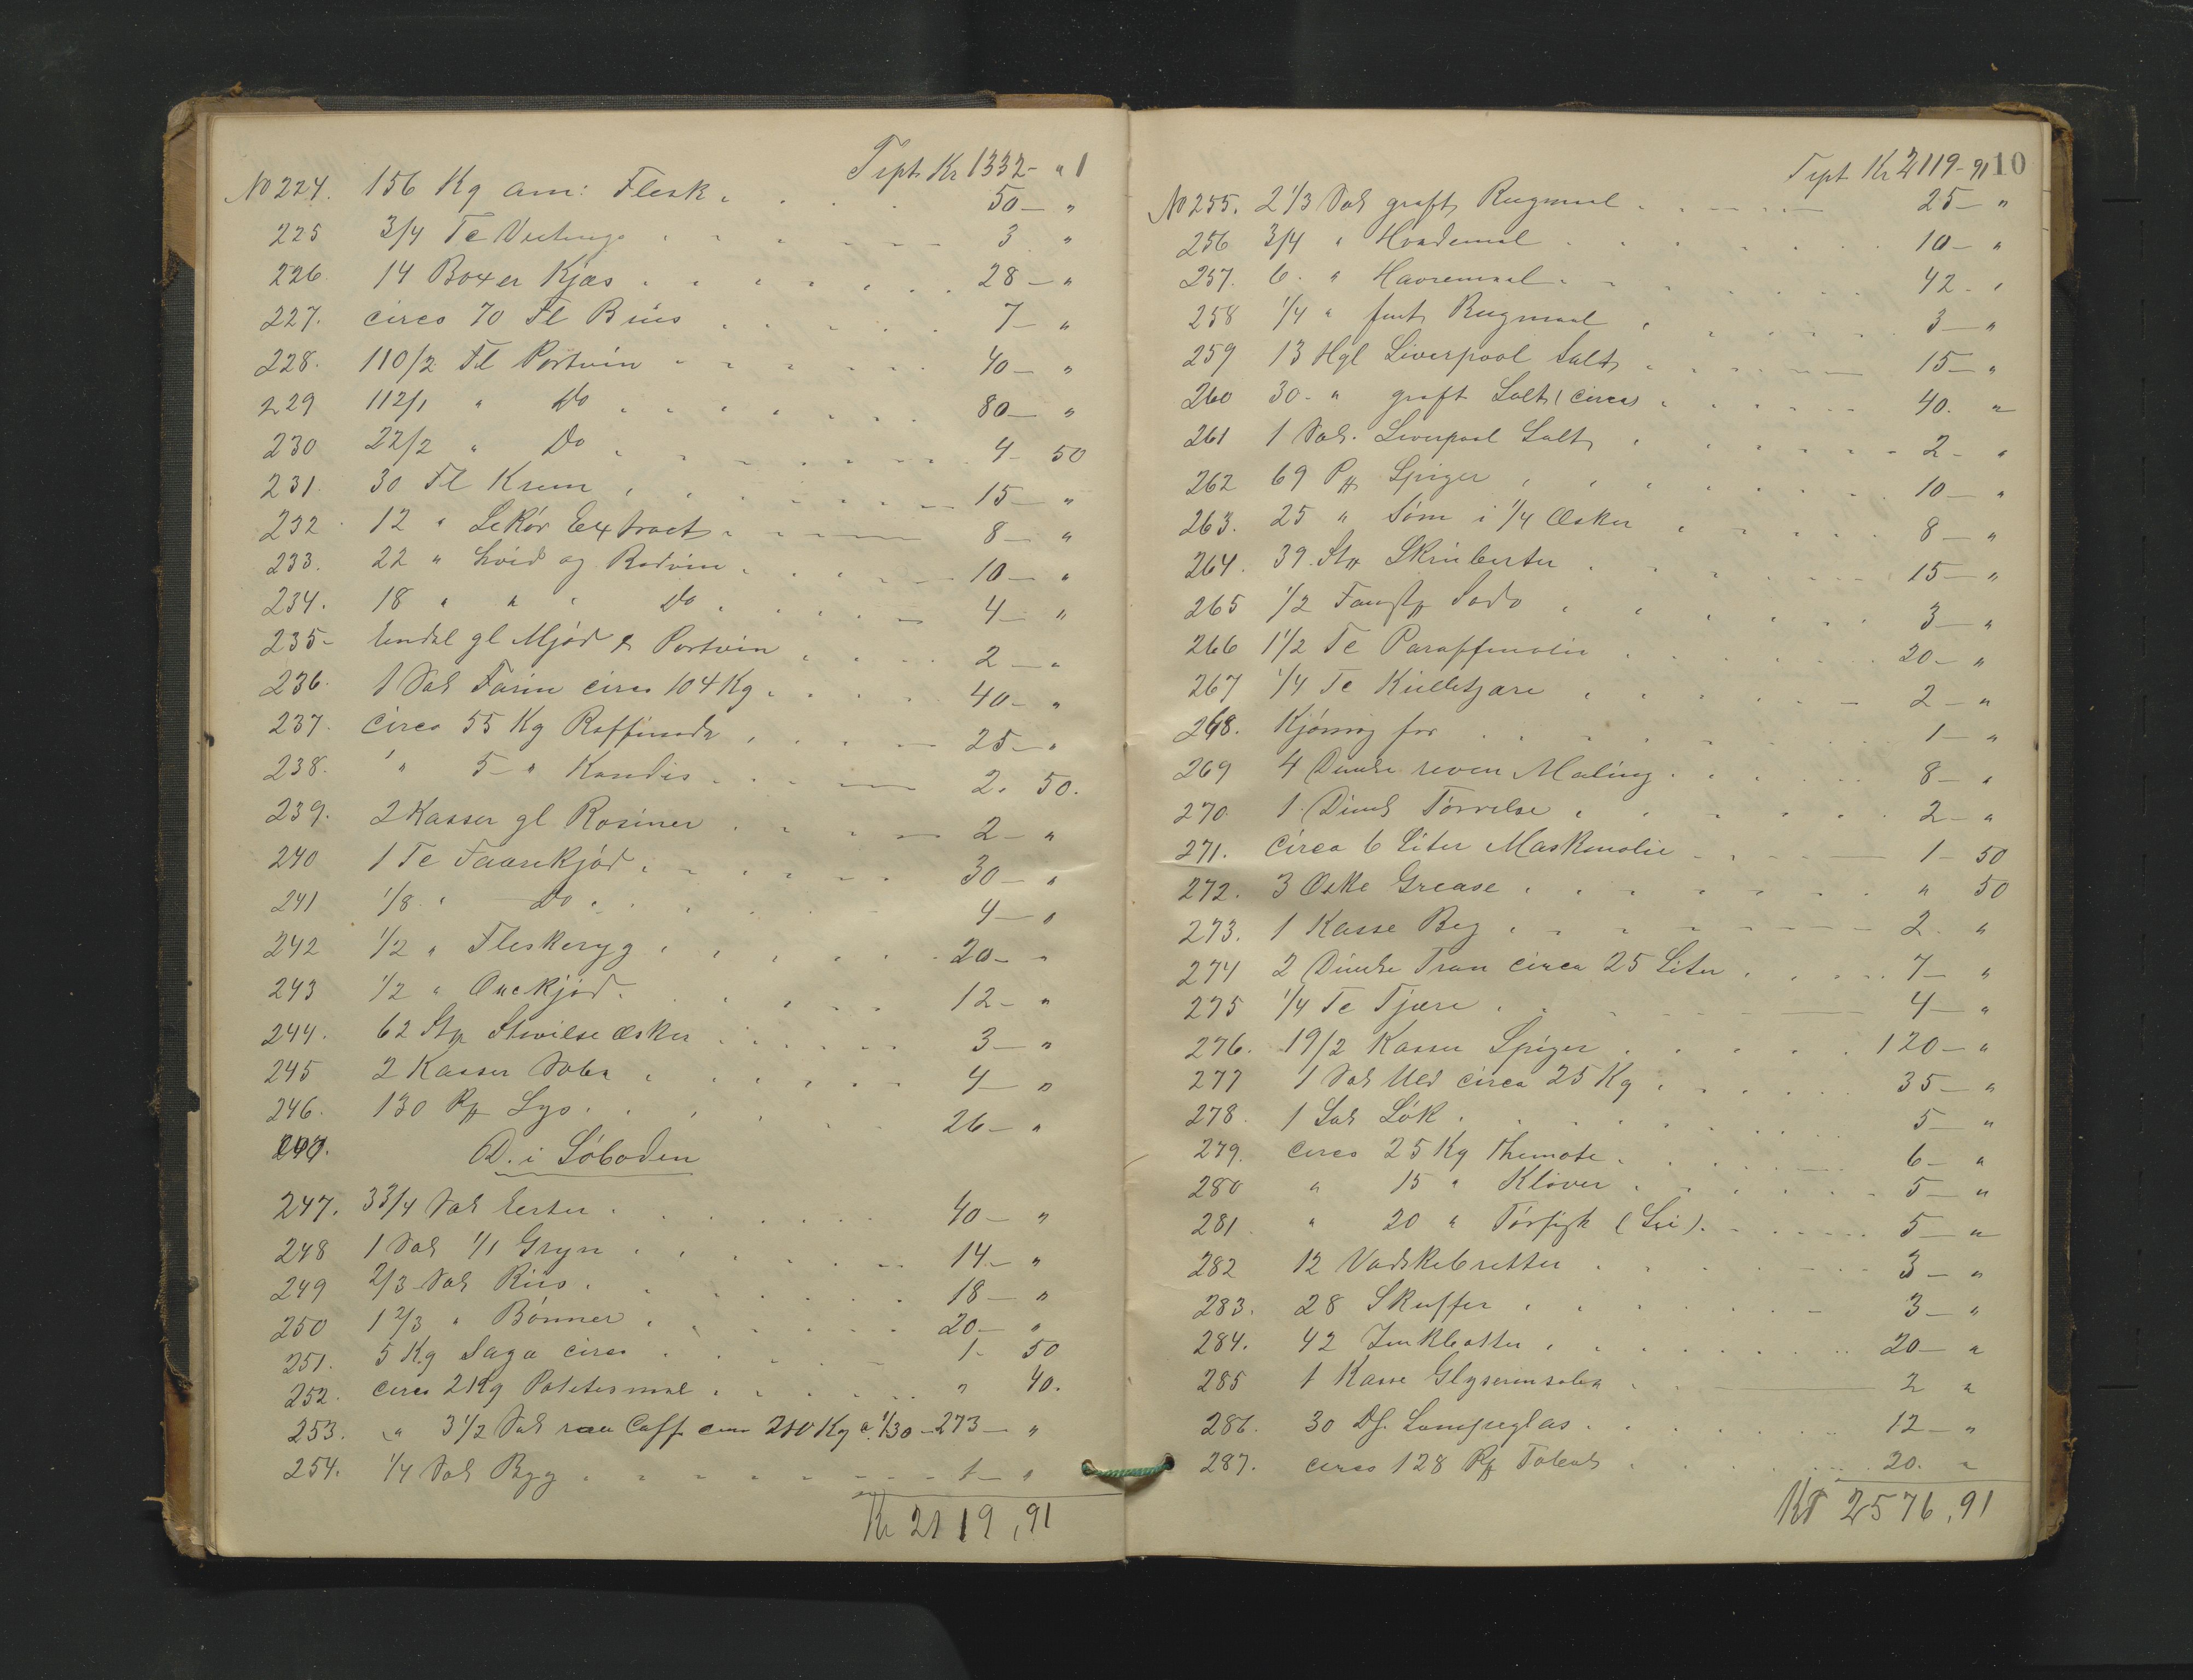 Trpt Kr 1332 - " 1
No 224. 156 Kg am: Flesk . 50 - "
225 3/4 Te 3 "
226. 14 Boxer Kjæs 28 - "
227. circa 70 Fl Brus 7 - "
228. 110/2 Fl Portvin 40 - "
229 112/1 " Do 80 - "
230 22/2 " Do 4 - 50
231. 30 Fl Krum 15 - "
232. 12 " Lekör Extract 8 - "
233. 22 " hvid og Rødvin 10 - "
234. 18 " " " Do 4 - "
235 - Endel gl Mjød & Portvin 2 - "
236. 1 Sæk Farin circa 104 Kg 40 - "
237. Circa 55 Kg Raffinade 25 - "
238. " 5 - " Kandis 2. 50.
239. 2 Kasser gl Rosiner 2 - "
240 1 Te Faarekjød 30 - "
241 1/8 " Do 4 - "
242 1/2 " Fleskeryg 20 - "
243 1/2 " Oxekjød. 12 - "
244. 62 Stk Stivelseæsker 3 - "
245 2 Kasser Sæbe 4 - "
246. 130 Pk Lys 26 - "
247. D. i Søboden
247. 3 3/4 Sæk Erter 40 - "
248 1 Sæk 1/1 Gryn 14. - "
249 2/3 Sæk Riis 18 - "
250 1 2/3 " Bønner 20 - "
251. 5 Kg Saga circa 1 - 50
252. circa 2 Kg Potetesmel " 40.
253. " 3 1/2 Sæk raa Caff. circa 210 Kg a 1/30 - 273 - "
254. 1/4 Sæk Byg 1 - "
Kr 2119,91
10
Trpt Kr 2119 - 91
No 255. 2 1/3 Sæk groft Rugmæl 25 - "
256 3/4 " Hvedemæl 10 - "
257. 6 - " Havremæl 42 - "
258 1/4 " fint Rugmæl 3 - "
259 13 Hgl Liverpool Salt 15 - "
260 30 - " groft Salt (circa) 40. "
261 1 Sæk. Liverpool Salt 2 - "
262 69 Pk Spiger 10 - "
263. 25 " Søm i 1/4 Æsker 8 - "
264. 39 Stk Skriubørster 15 - "
265 1/2 Soda 3 - "
266 1 1/2 Te Paraffinolie 20 - "
267 1/4 Te Kultjære 2 - "
268. Kjønrøg for 1 - "
269 4 Dunke reven Maling 8 - "
270. 1 Dunk Tørrelse 2 - "
271. Circa 6 Liter Maskinolie 1 - 50
272. 3 Æske Grease " 50
273. 1 Kasse Beg 2. "
274 2 Dunke Tran circa 25 Liter 7 - "
275 1/4 Te Tjære 4 - "
276. 19/2 Kasser Spiger 120 - "
277 1 Sæk Uld circa 25 Kg 35 - "
278. 1 Sæk Løk 5 - "
279. circa 25 Kg Themote 6 - "
280 " 15 " Kløver 5 - "
281 " 20 " Tørfisk (Sei) 5 - "
282 12 Vadskebretter 3 - "
283. 28 Skuffer 3 - "
284. 42 Zinkbøtter 20 - "
285 1 Kasse Glyserinsæbe 2 "
286. 30 Ds. Lampeglas 12 - "
287. circa 128 Pk Tobak 20. "
Kr 2576,91